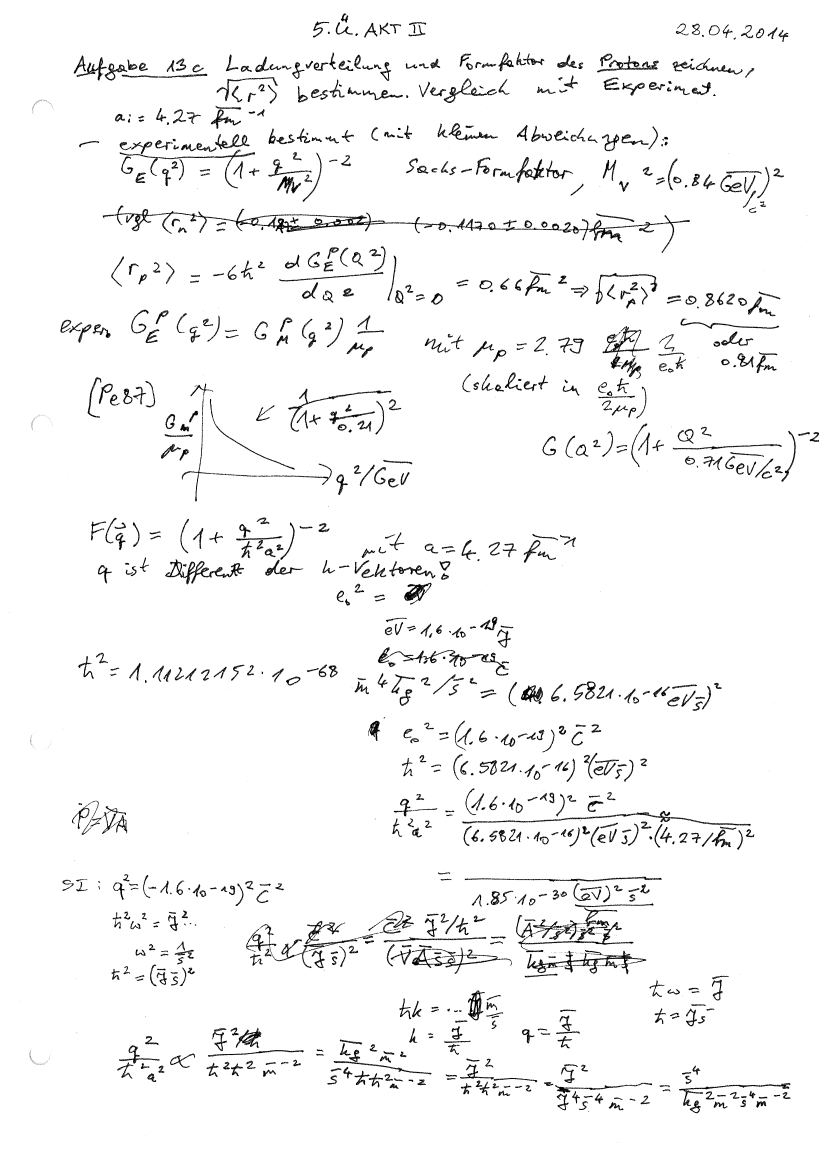 5. Ü. AKT II 28.04.2014
Aufgabe 13c Ladungverteilung und Formfaktor des Protons zeichnen,
√⟨r²⟩ bestimmen. Vergleich mit Experiment.
a := 4.27 fm⁻¹
– experimentell bestimmt (mit kleinen Abweichungen):
G_E(q²) = (1 + q²/M_V²)⁻² Sachs-Formfaktor, M_V² = (0.84 GeV/c²)²
⟨r_p²⟩ = -6ħ² dG_E^p(Q²)/dQ² |_{Q²=0} = 0.66 fm² ⇒ √⟨r_p²⟩ = 0.8620 fm
oder 0.81 fm
exper. G_E^p(q²) = G_M^p(q²) 1/μ_p mit μ_p = 2.79
(skaliert in e₀ħ/2μ_p)
[Pe87] G_M^p/μ_p ↙ 1/(1 + q²/0.21)²
→ q²/GeV
G(Q²) = (1 + Q²/0.71 GeV/c²)⁻²
F(q⃗) = (1 + q²/ħ²a²)⁻² mit a = 4.27 fm⁻¹
q ist Differenz der k-Vektoren!
e₀² =
eV = 1.6·10⁻¹⁹ J
ħ² = 1.11212152·10⁻⁶⁸ m⁴ kg²/s² = (6.5821·10⁻¹⁶ eV s)²
e₀² = (1.6·10⁻¹⁹)² C²
ħ² = (6.5821·10⁻¹⁶)² (eV s)²
q²/ħ²a² = (1.6·10⁻¹⁹)² C² / (6.5821·10⁻¹⁶)² (eV s)² · (4.27/fm)²
= / 1.85·10⁻³⁰ (eV)² s²
SI: q² = (-1.6·10⁻¹⁹)² C²
ħ²ω² = J² ...
ω² = 1/s²
ħ² = (J s)²
ħω = J
ħ = J s
ħk = ... m/s
k = J/ħ q = J/ħ
q²/ħ²a² ∝ J²/ħ²ħ² m⁻² = kg² m²/s⁴ħħħ² m⁻² = J²/ħ²ħ² m⁻² = J²/J⁴ s⁴ m⁻² = s⁴/kg² m² s⁴ m⁻²